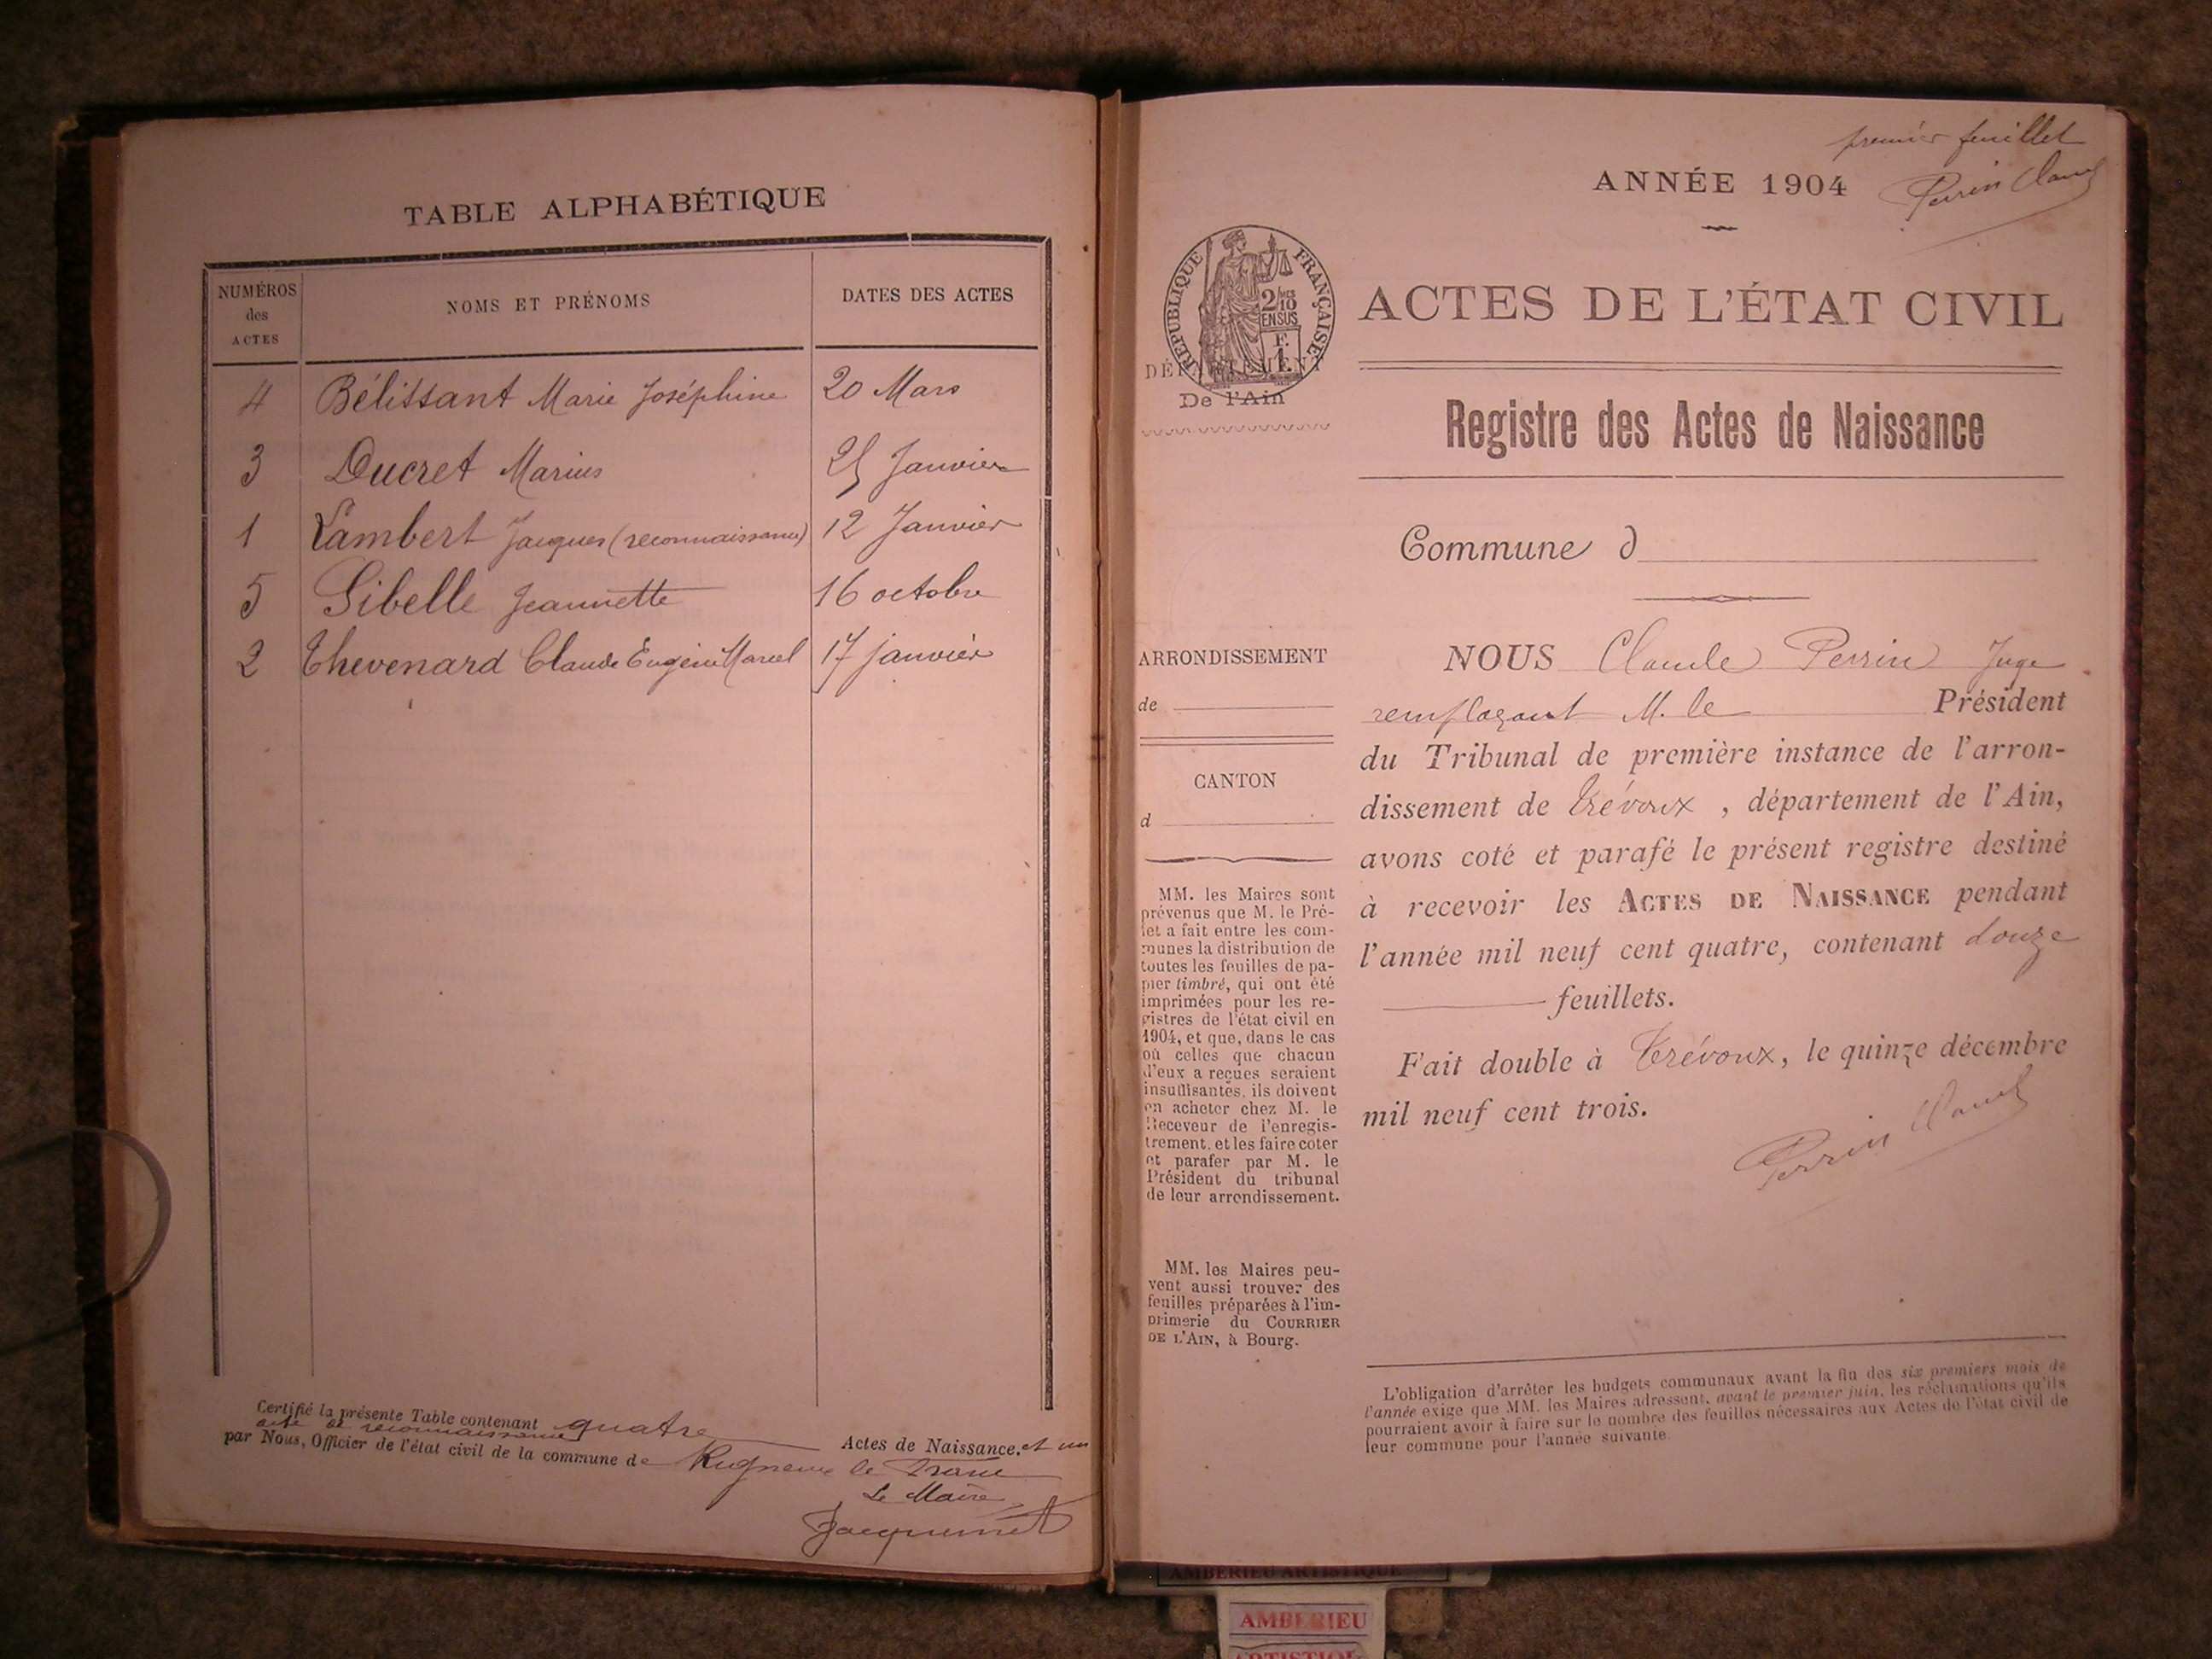 TABLE ALPHABÉTIQUE
NUMÉROS
des
ACTES
NOMS ET PRÉNOMS
DATES DES ACTES
4 Bélissant Marie Joséphine 20 Mars
3 Ducret Marius 25 Janvier
1 Lambert Jacques (reconnaissance) 12 Janvier
5 Sibelle Jeannette 16 octobre
2 Thevenard Claude Eugène Marcel 17 janvier
Certifié la présente Table contenant quatre Actes de Naissance, et un
acte de reconnaissance
par Nous, Officier de l'état civil de la commune de Rigneux le Franc
Le Maire
Jacquemet
premier feuillet
Perrin Claude
ANNÉE 1904
RÉPUBLIQUE FRANÇAISE
2/10
EN SUS
F.
1.
DÉPARTEMENT
De l'Ain
ACTES DE L'ÉTAT CIVIL
Registre des Actes de Naissance
Commune d
ARRONDISSEMENT
de
CANTON
d
MM. les Maires sont
prévenus que M. le Pré-
fet a fait entre les com-
munes la distribution de
toutes les feuilles de pa-
pier timbré, qui ont été
imprimées pour les re-
gistres de l'état civil en
1904, et que, dans le cas
où celles que chacun
d'eux a reçues seraient
insuffisantes, ils doivent
en acheter chez M. le
Receveur de l'enregis-
trement, et les faire coter
et parafer par M. le
Président du tribunal
de leur arrondissement.
MM. les Maires peu-
vent aussi trouver des
feuilles préparées à l'im-
primerie du COURRIER
DE L'AIN, à Bourg.
NOUS Claude Perrin Juge
remplaçant M. le Président
du Tribunal de première instance de l'arron-
dissement de Trévoux, département de l'Ain,
avons coté et parafé le présent registre destiné
à recevoir les ACTES DE NAISSANCE pendant
l'année mil neuf cent quatre, contenant douze
feuillets.
Fait double à Trévoux, le quinze décembre
mil neuf cent trois.
Perrin Claude
L'obligation d'arrêter les budgets communaux avant la fin des six premiers mois de
l'année exige que MM. les Maires adressent, avant le premier juin, les réclamations qu'ils
pourraient avoir à faire sur le nombre des feuilles nécessaires aux Actes de l'état civil de
leur commune pour l'année suivante.
AMBERIEU ARTISTIQUE
AMBERIEU